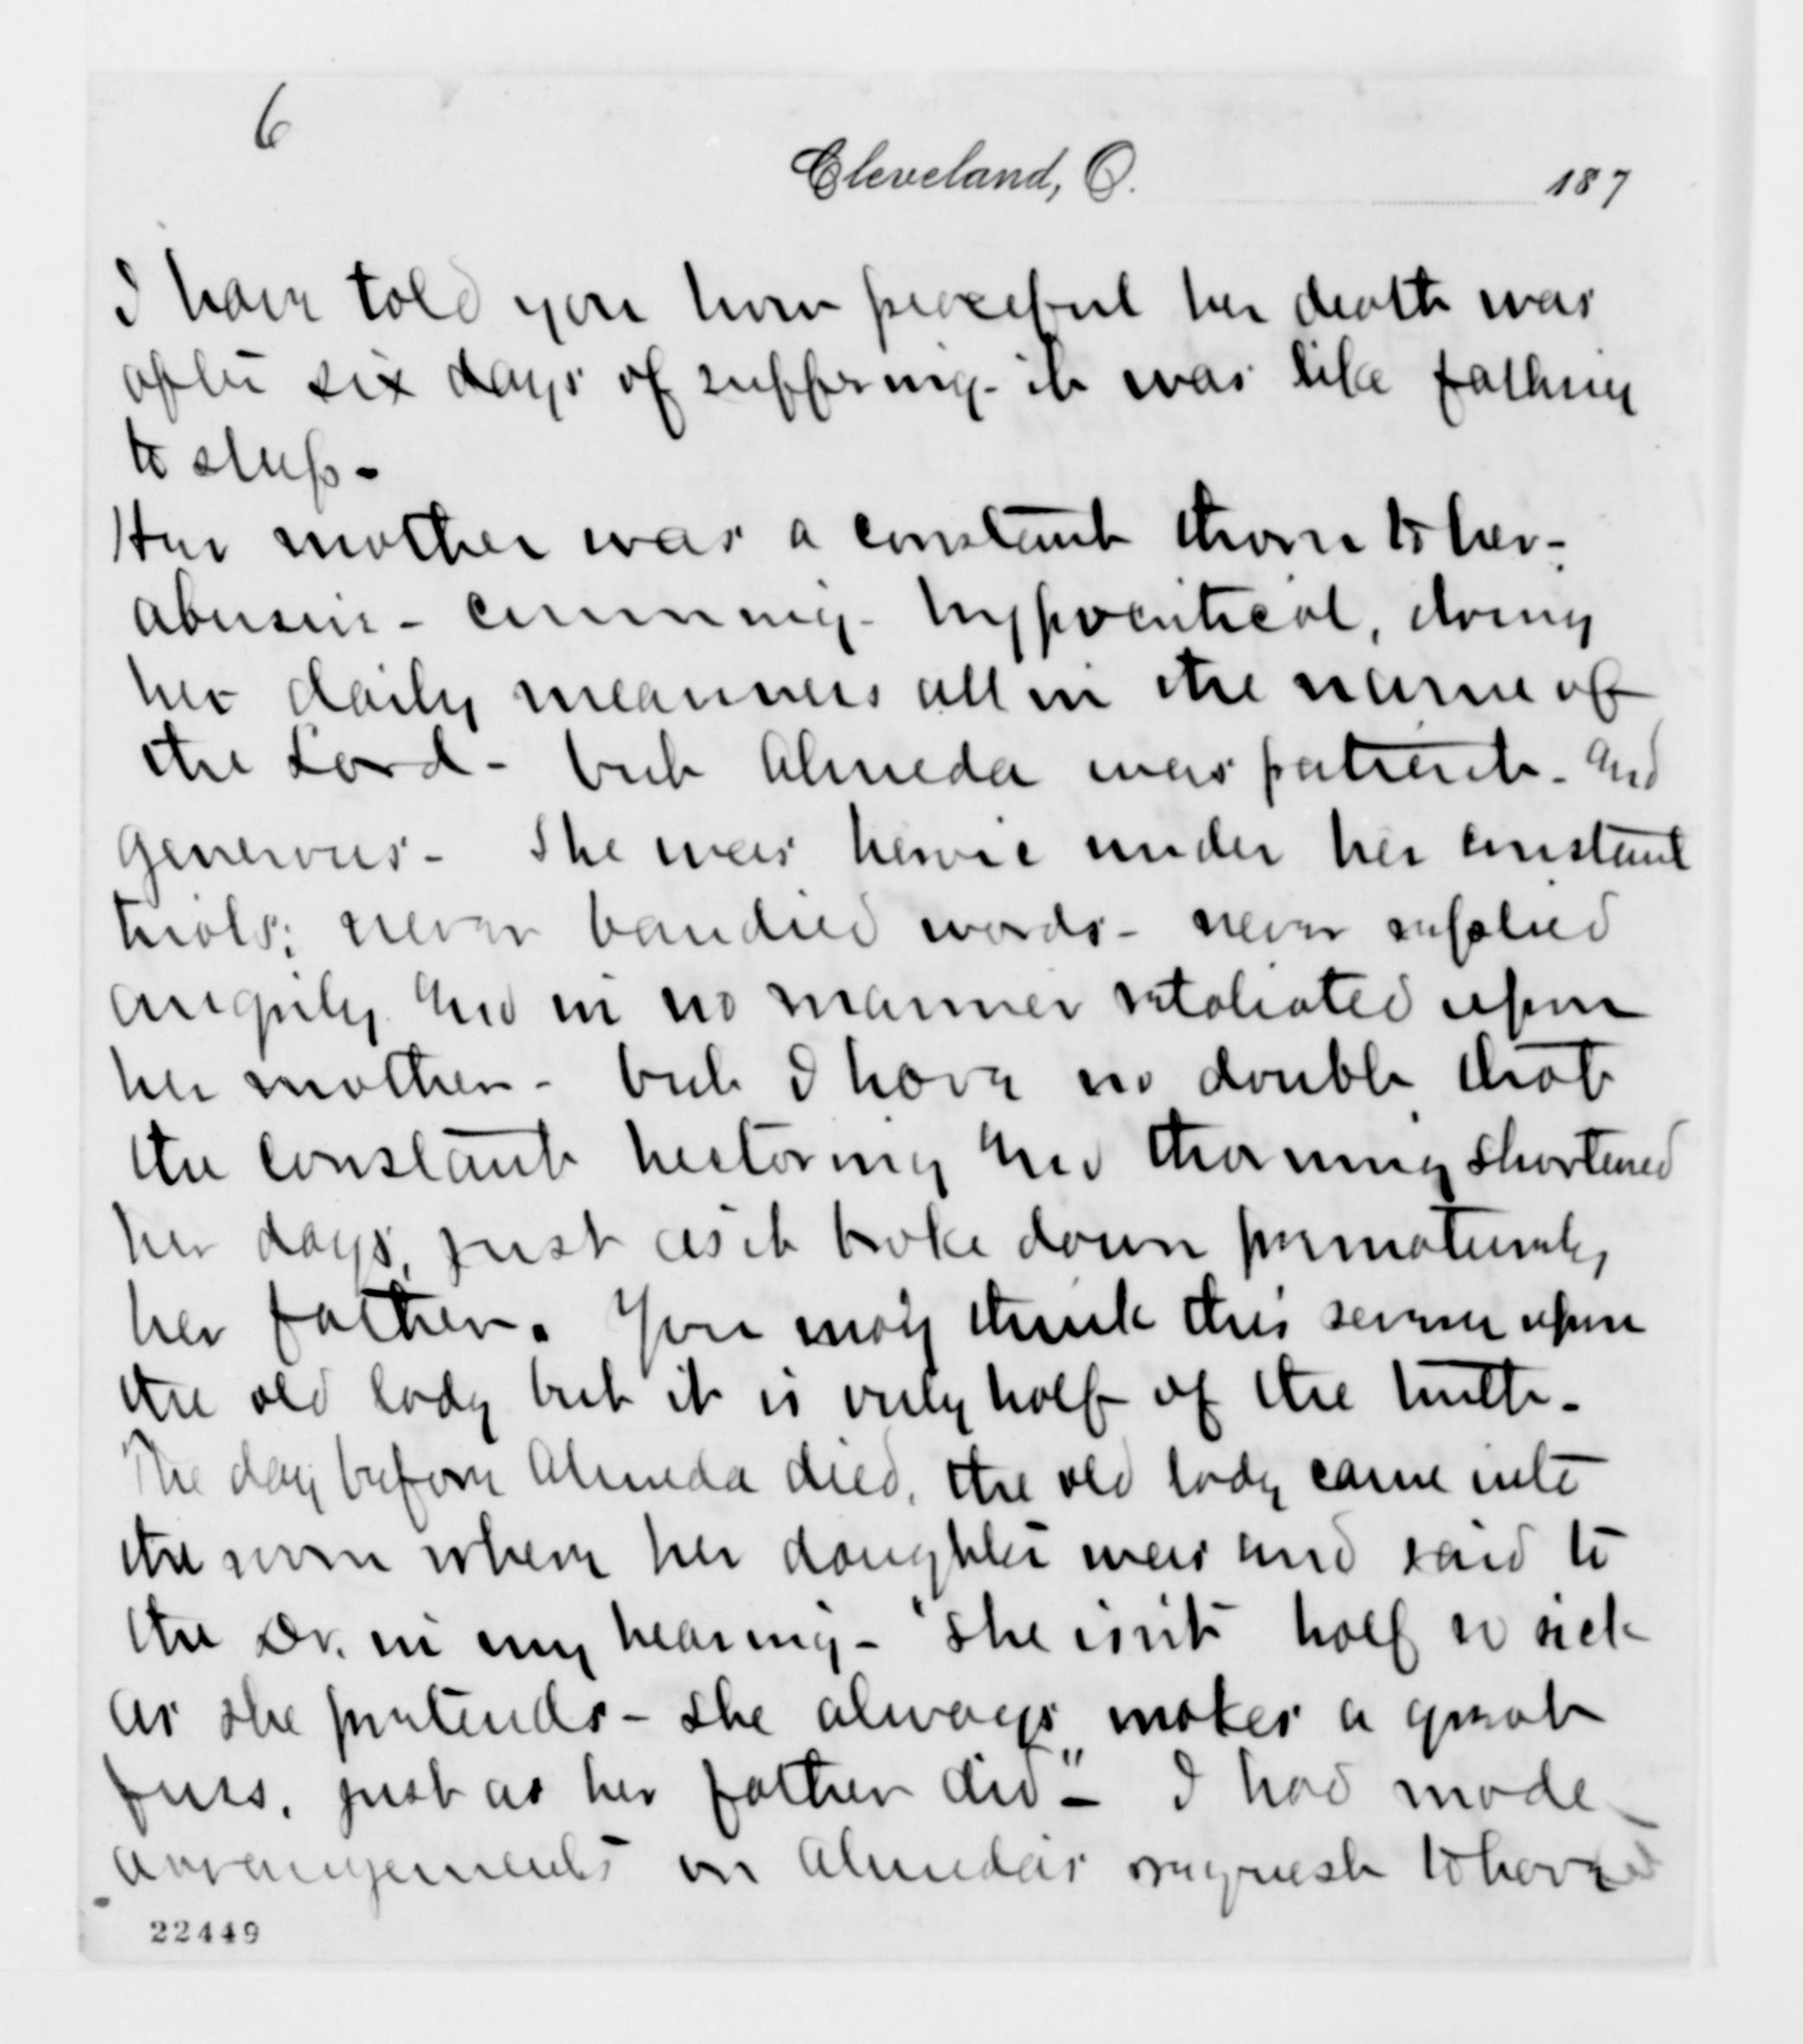 6
Cleveland, O. 187
I have told you how peaceful her death was
after six days of suffering - it was like falling
to sleep -
Her mother was a constant thorn to her -
abusive - cunning - hypocritical, doing
her daily meanness all in the name of
the Lord - but Almeda was patient - and
generous - She was heroic under her constant
trials; never bandied words - never replied
angrily and in no manner retaliated upon
her mother - but I have no doubt that
the constant hectoring and thorning shortened
her days, just as it broke down prematurely
her father. You may think this severe upon
the old lady but it is only half of the truth -
The day before Almeda died, the old lady came into
the room where her daughter was and said to
the Dr. in my hearing - "She isn't half so sick
as she pretends - she always makes a great
fuss, just as her father did" - I had made
arrangements on Almeda's request to have
22449